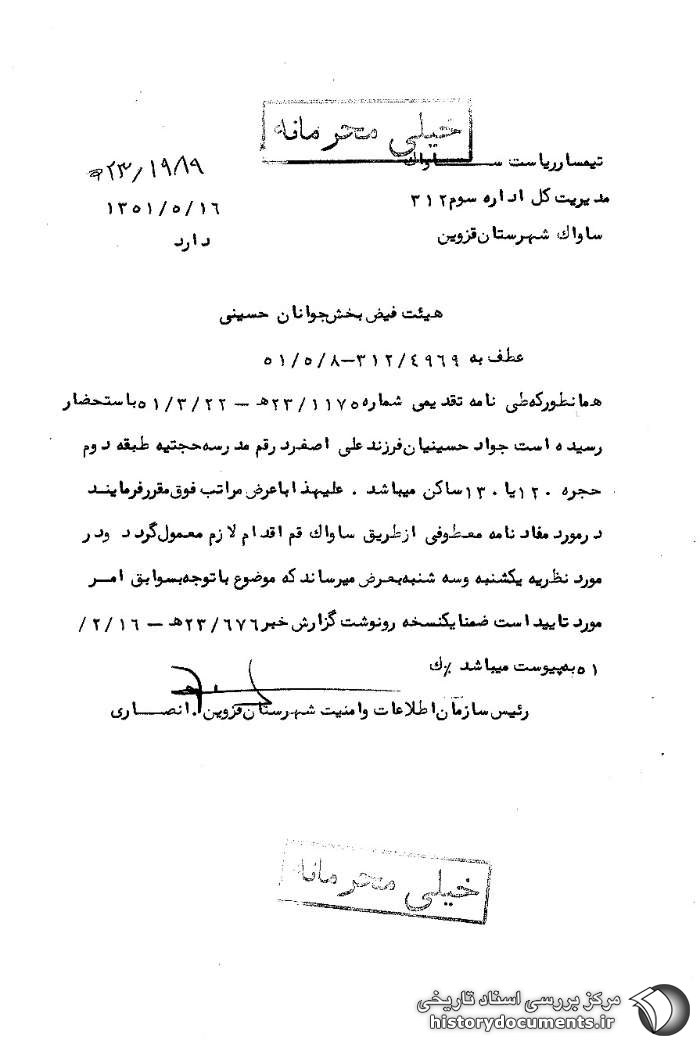 خیلی محرمانه
تیمسار ریاست ســـاواك
۲۳/۱۹۸۹ه
مدیریت کل اداره سوم ۳۱۲
۱۳۵۱/۵/۱۶
ساواك شهرستان قزوین
دارد
هیئت فیض بخش جوانان حسینی
عطف به ۳۱۲/٤۹٦۹–۵۱/۵/۸
همانطور که طی نامه تقدیمی شماره ۲۳/۱۱۷۵ه – ۵۱/۳/۲۲ باستحضار
رسیده است جواد حسینیان فرزند علی اصغر در قم مدرسه حجتیه طبقه دوم
حجره ۱۲۰ یا ۱۳۰ ساکن میباشد . علیهذا با عرض مراتب فوق مقرر فرمایند
در مورد مفاد نامه معطوفی از طریق ساواك قم اقدام لازم معمول گردد و در
مورد نظریه یکشنبه وسه شنبه بعرض میرساند که موضوع با توجه بسوابق امـر
مورد تایید است ضمنا یکنسخه رونوشت گزارش خبر ۲۳/٦۷٦ه – ۲/۱٦/
۵۱ به پیوست میباشد ٪ ك
رئیس سازمان اطلاعات و امنیت شهرستان قزوین . انصـــاری
خیلی محرمانه
مرکز بررسی اسناد تاریخی
historydocuments.ir